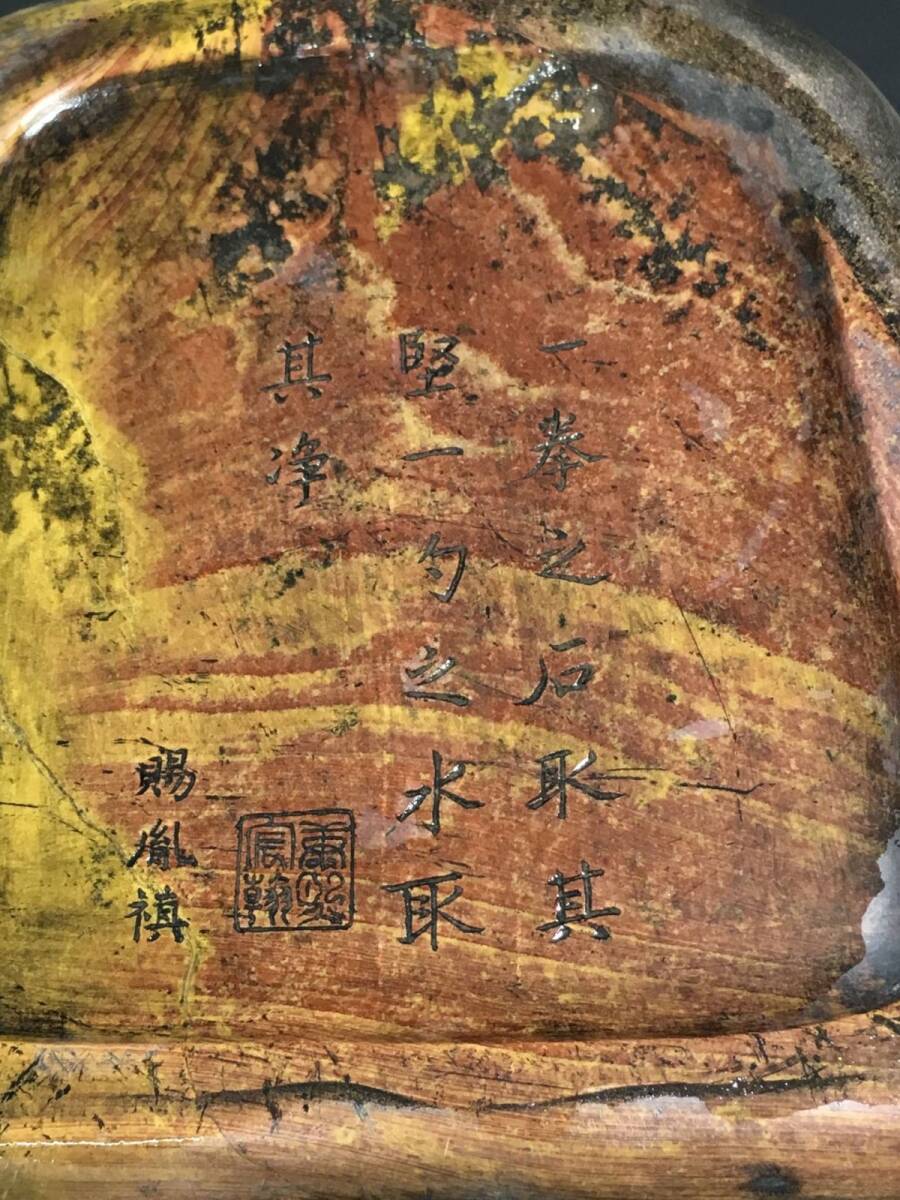 一拳之石取其
坚一勺之水取
其净
康熙宸翰
賜胤禛